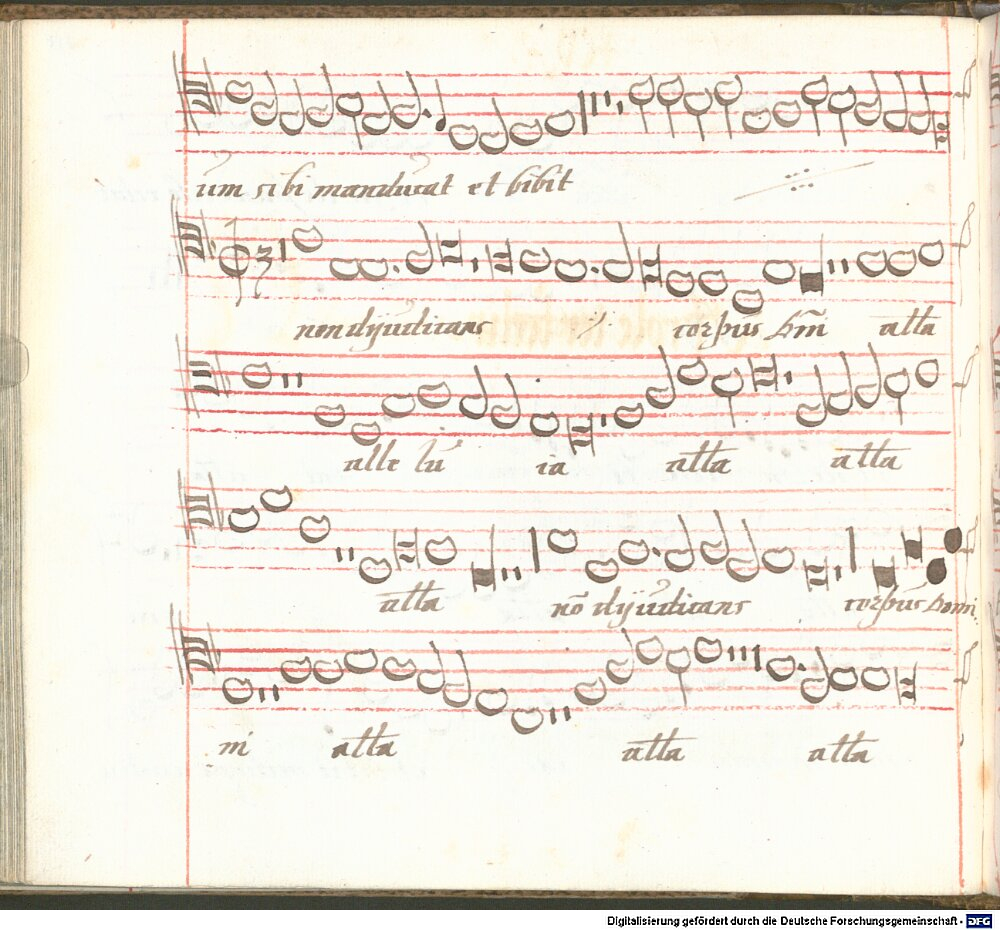 um sibi manducat et bibit ·//·
non dijudicans ·/· corpus dm̄ alla
alle lu ia alla alla
alla nō dijudicans corpus domi
ni alla alla alla
Digitalisierung gefördert durch die Deutsche Forschungsgemeinschaft - DFG